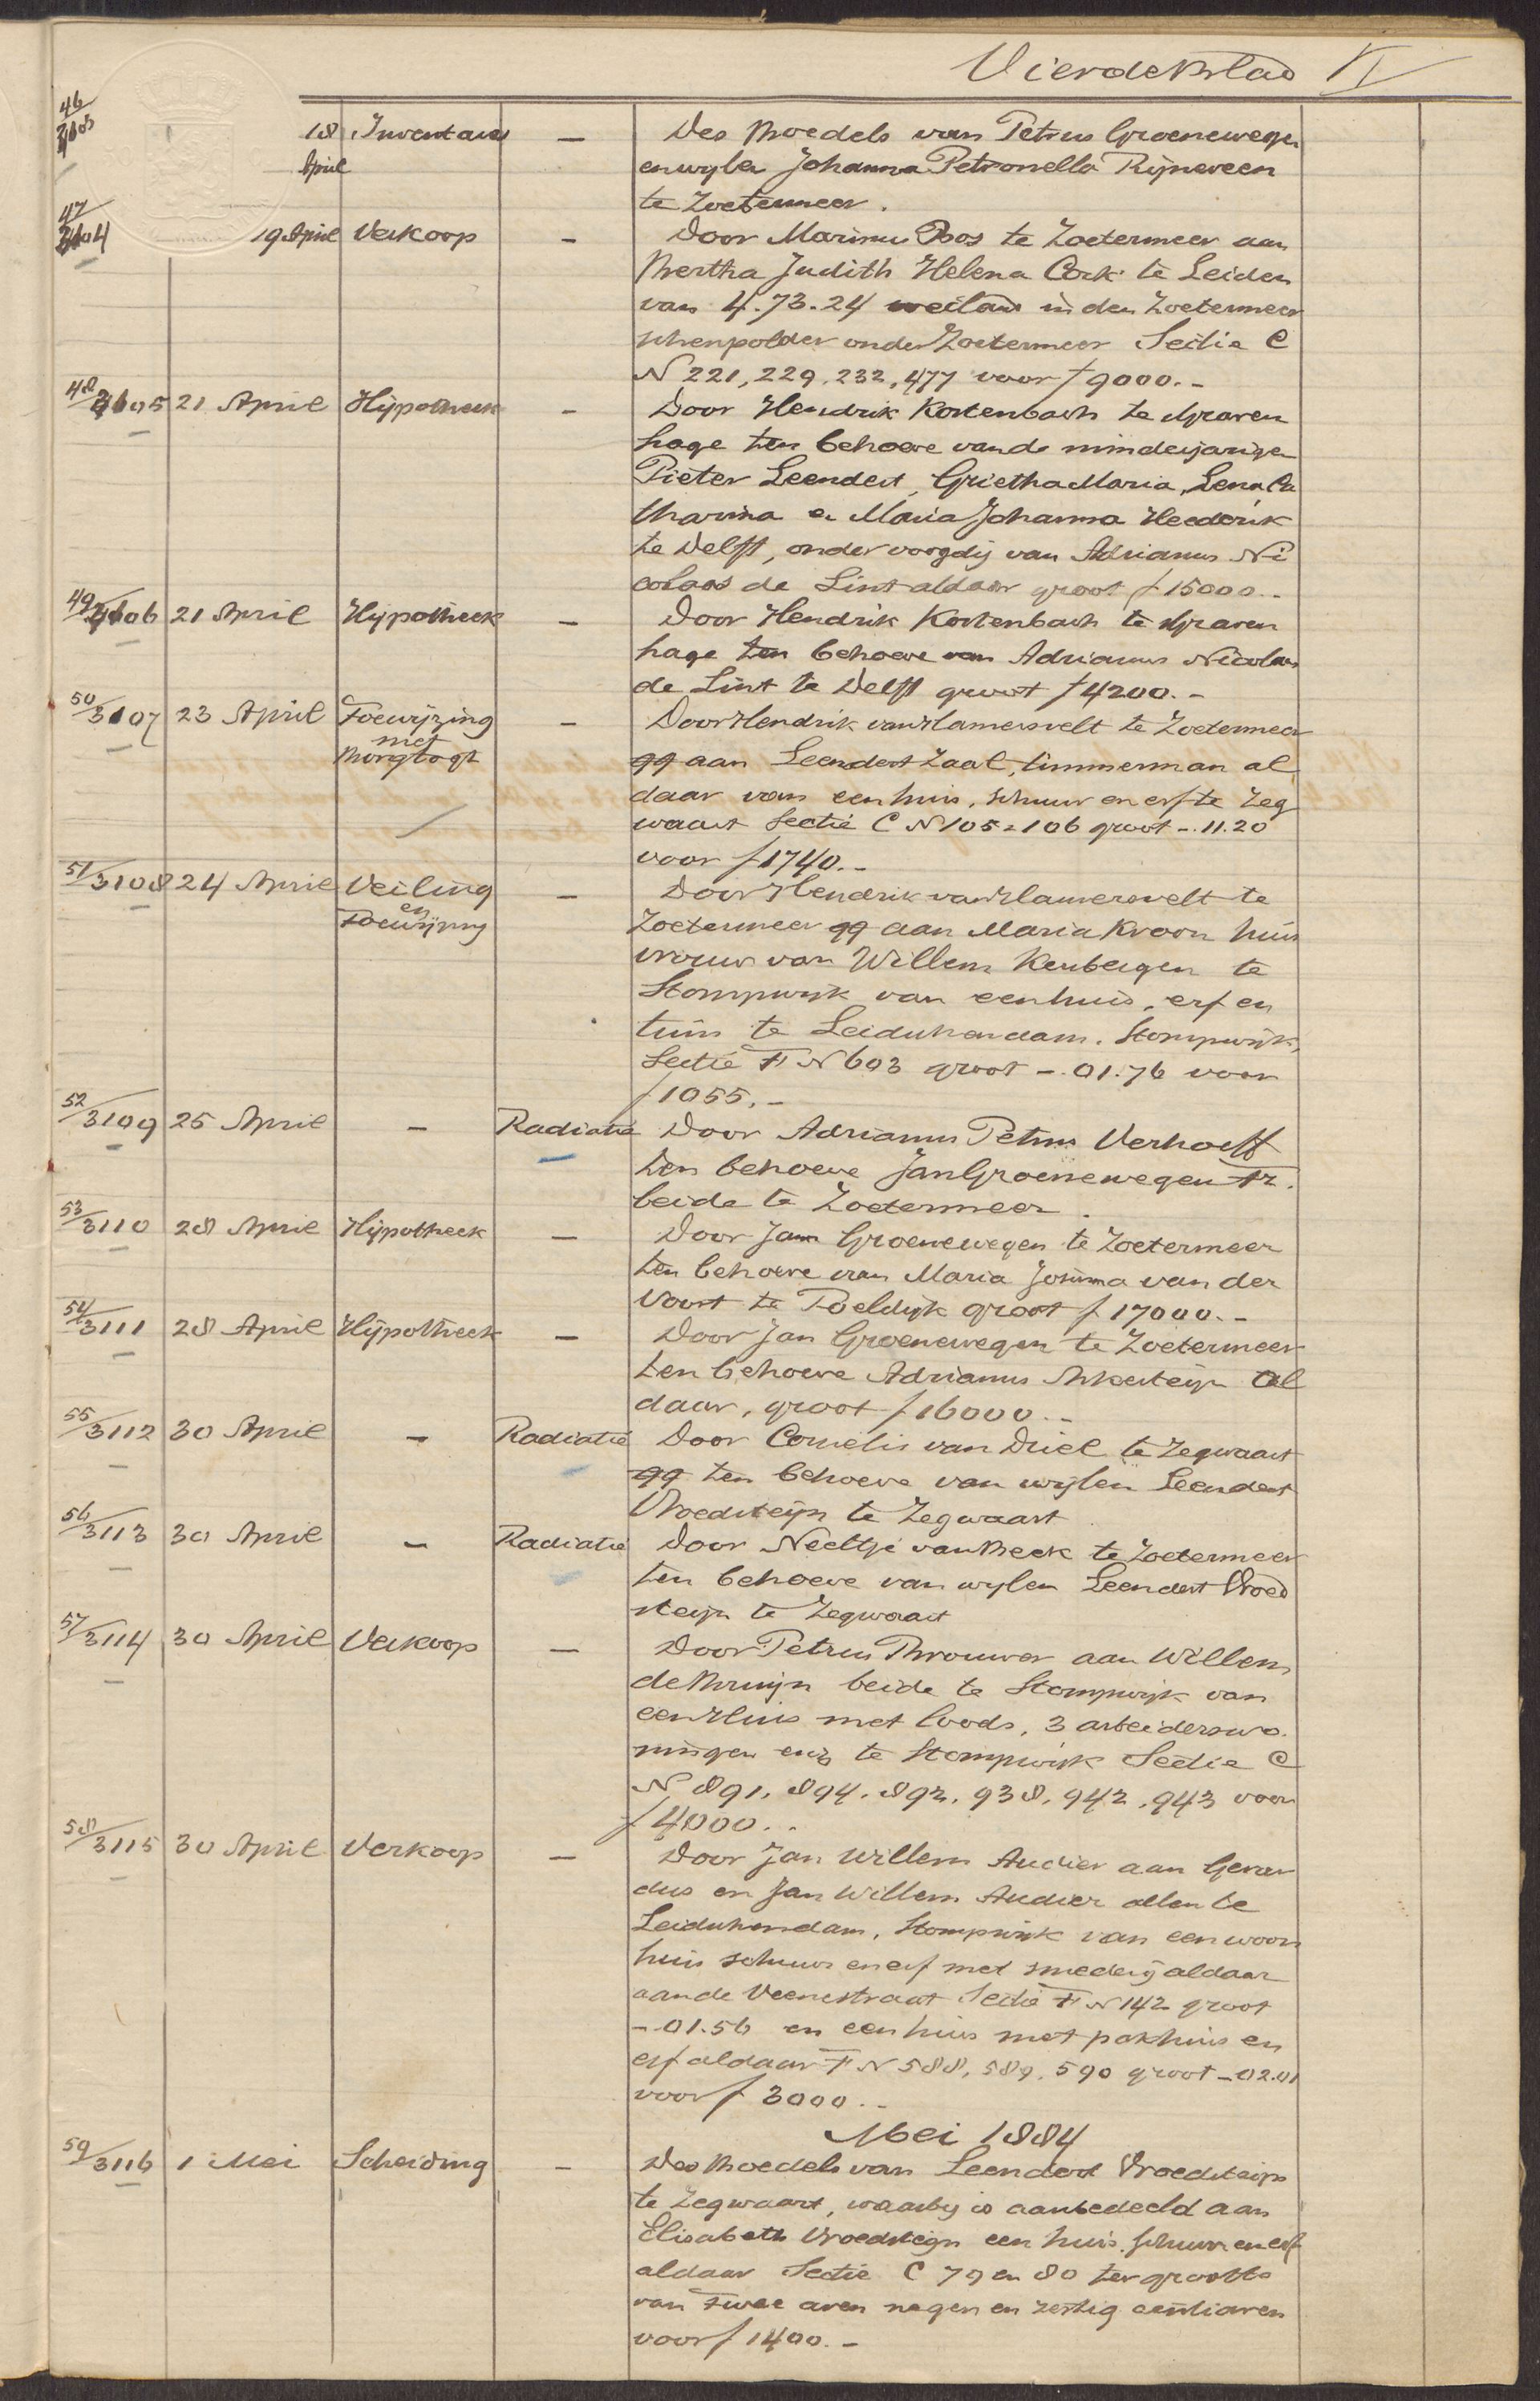 Vierde blad IV
46/3103 18 April Inventaris — Des boedels van Petrus Groenewegen
en wylen Johanna Petronella Rijneveen
te Zoetermeer.
47/3104 19 April Verkoop — Door Marinus Bos te Zoetermeer aan
Bertha Judith Helena Cock te Leiden
van 4.73.24 weiland in den Zoetermeer
schenpolder onder Zoetermeer Sectie C
N 221, 229, 232, 477 voor f 9000.-
48/3105 21 April Hypotheek — Door Hendrik Kortenbach te sGraven
hage ten behoeve van de minderjarigen
Pieter Leendert, Grietha Maria, Lena Ca
tharina en Maria Johanna
te Delft, onder voogdij van Adrianus Ni
colaas de Lint aldaar groot f 15000.-
49/3106 21 April Hypotheek — Door Hendrik Kortenbach te sGraven
hage ten behoeve van Adrianus Nicolaas
de Lint te Delft groot f 4200.-
50/3107 23 April Toewijzing — Door Hendrik van Hamersvelt te Zoetermeer
met
Borgtogt qq aan Leendert Zaal, timmerman al
daar van een huis, schuur en erf te Zeg
waart Sectie C N 105 en 106 groot -.11.20
voor f 1740.-
51/3108 24 April Veiling — Door Hendrik van Hamersvelt te
en
Toewijzing Zoetermeer qq aan Maria Kroon huis
vrouw van Willem Kerbergen te
Stompwijk van een huis, erf en
tuin te Leidschendam, Stompwijk,
Sectie F N 603 groot -.01.76 voor
f 1055.-
52/3109 25 April — Radiatie Door Adrianus Petrus Verhoeff
ten behoeve Jan Groenewegen
beide te Zoetermeer.
53/3110 28 April Hypotheek — Door Jan Groenewegen te Zoetermeer
ten behoeve van Maria Josina van der
Voort te Poeldijk groot f 17000.-
54/3111 28 April Hypotheek — Door Jan Groenewegen te Zoetermeer
ten behoeve Adrianus Ankersteijn al
daar, groot f 16000.-
55/3112 30 April — Radiatie Door Cornelis van Driel te Zegwaart
qq ten behoeve van wijlen Leendert
Vroedsteijn te Zegwaart
56/3113 30 April — Radiatie Door Neeltje van Beek te Zoetermeer
ten behoeve van wylen Leendert Vroed
steijn te Zegwaart
57/3114 30 April Verkoop — Door Petrus Brouwer aan Willem
de Bruijn beide te Stompwijk van
een Huis met loods, 3 arbeiderswo
ningen enz te Stompwijk Sectie C
N 891, 894, 892, 938, 942, 943 voor
f 4000.-
58/3115 30 April Verkoop — Door Jan Willem Audier aan Gerar
dus en Jan Willem Audier allen te
Leidschendam, Stompwijk van een woon
huis schuur en erf met smederij aldaar
aan de Veenestraat Sectie F N 142 groot
-.01.56 en een huis met pakhuis en
erf aldaar F N 588, 589, 590 groot -.02.01
voor f 3000.-
Mei 1884
59/3116 1 Mei Scheiding — Des boedels van Leendert Vroedsteijn
te Zegwaart, waarby is aanbedeeld aan
Elisabeth Vroedsteijn een huis, schuur en erf
aldaar Sectie C 79 en 80 ter grootte
van twee aren negen en zestig centiaren
voor f 1400.-